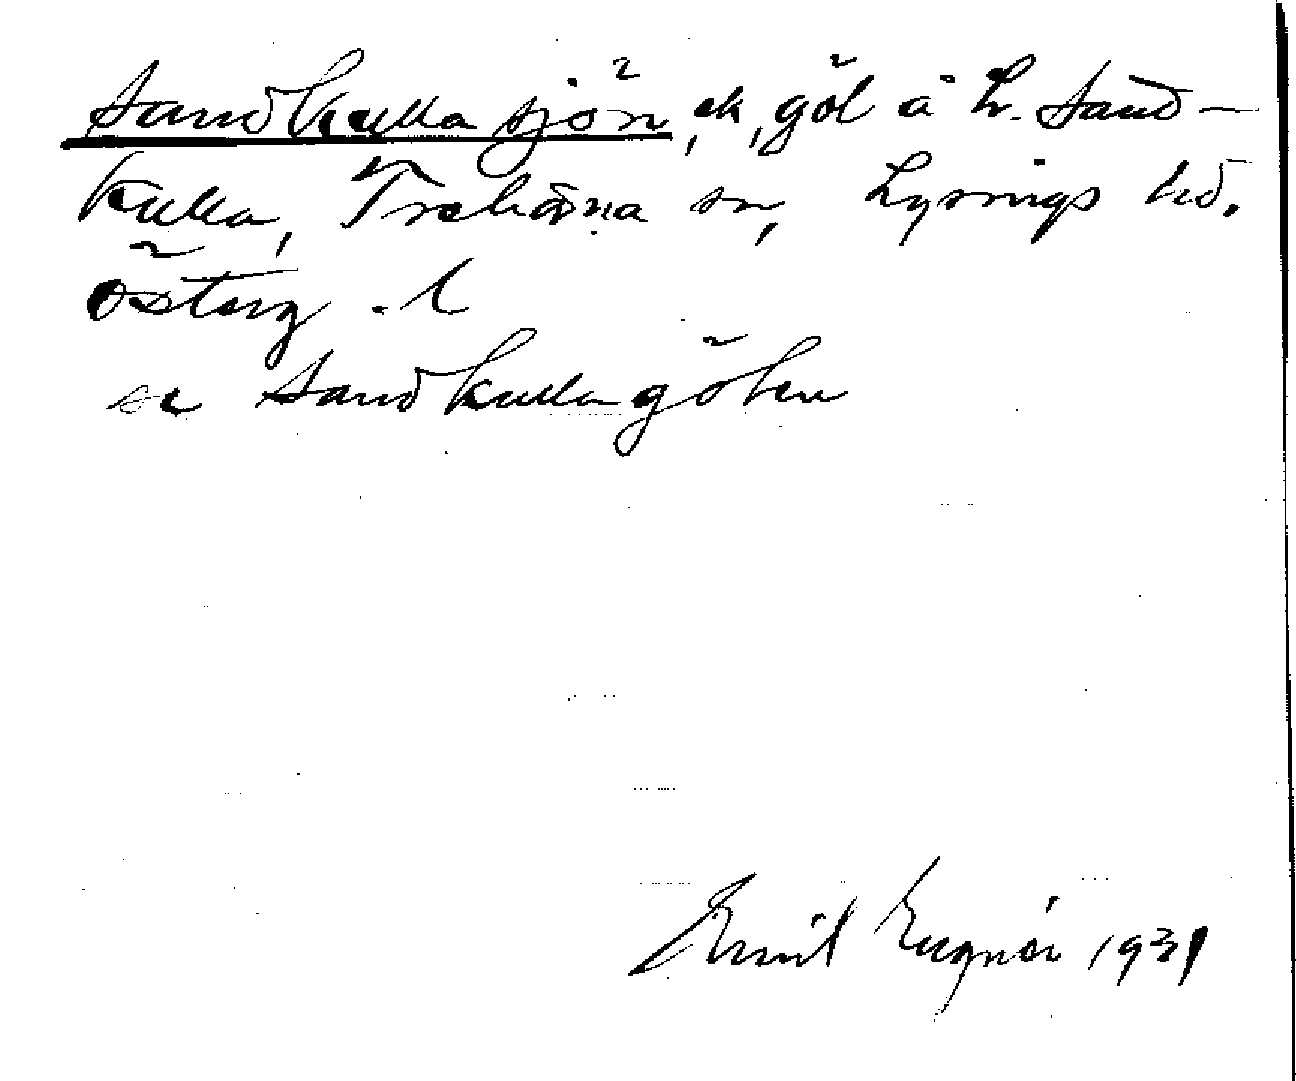 Sandkullasjön, sk, göl å L. Sand-
kulla, Trehörna sn, Lysings hd.
Österg. l
se Sandkullagölen
Emil Lugnér 1931